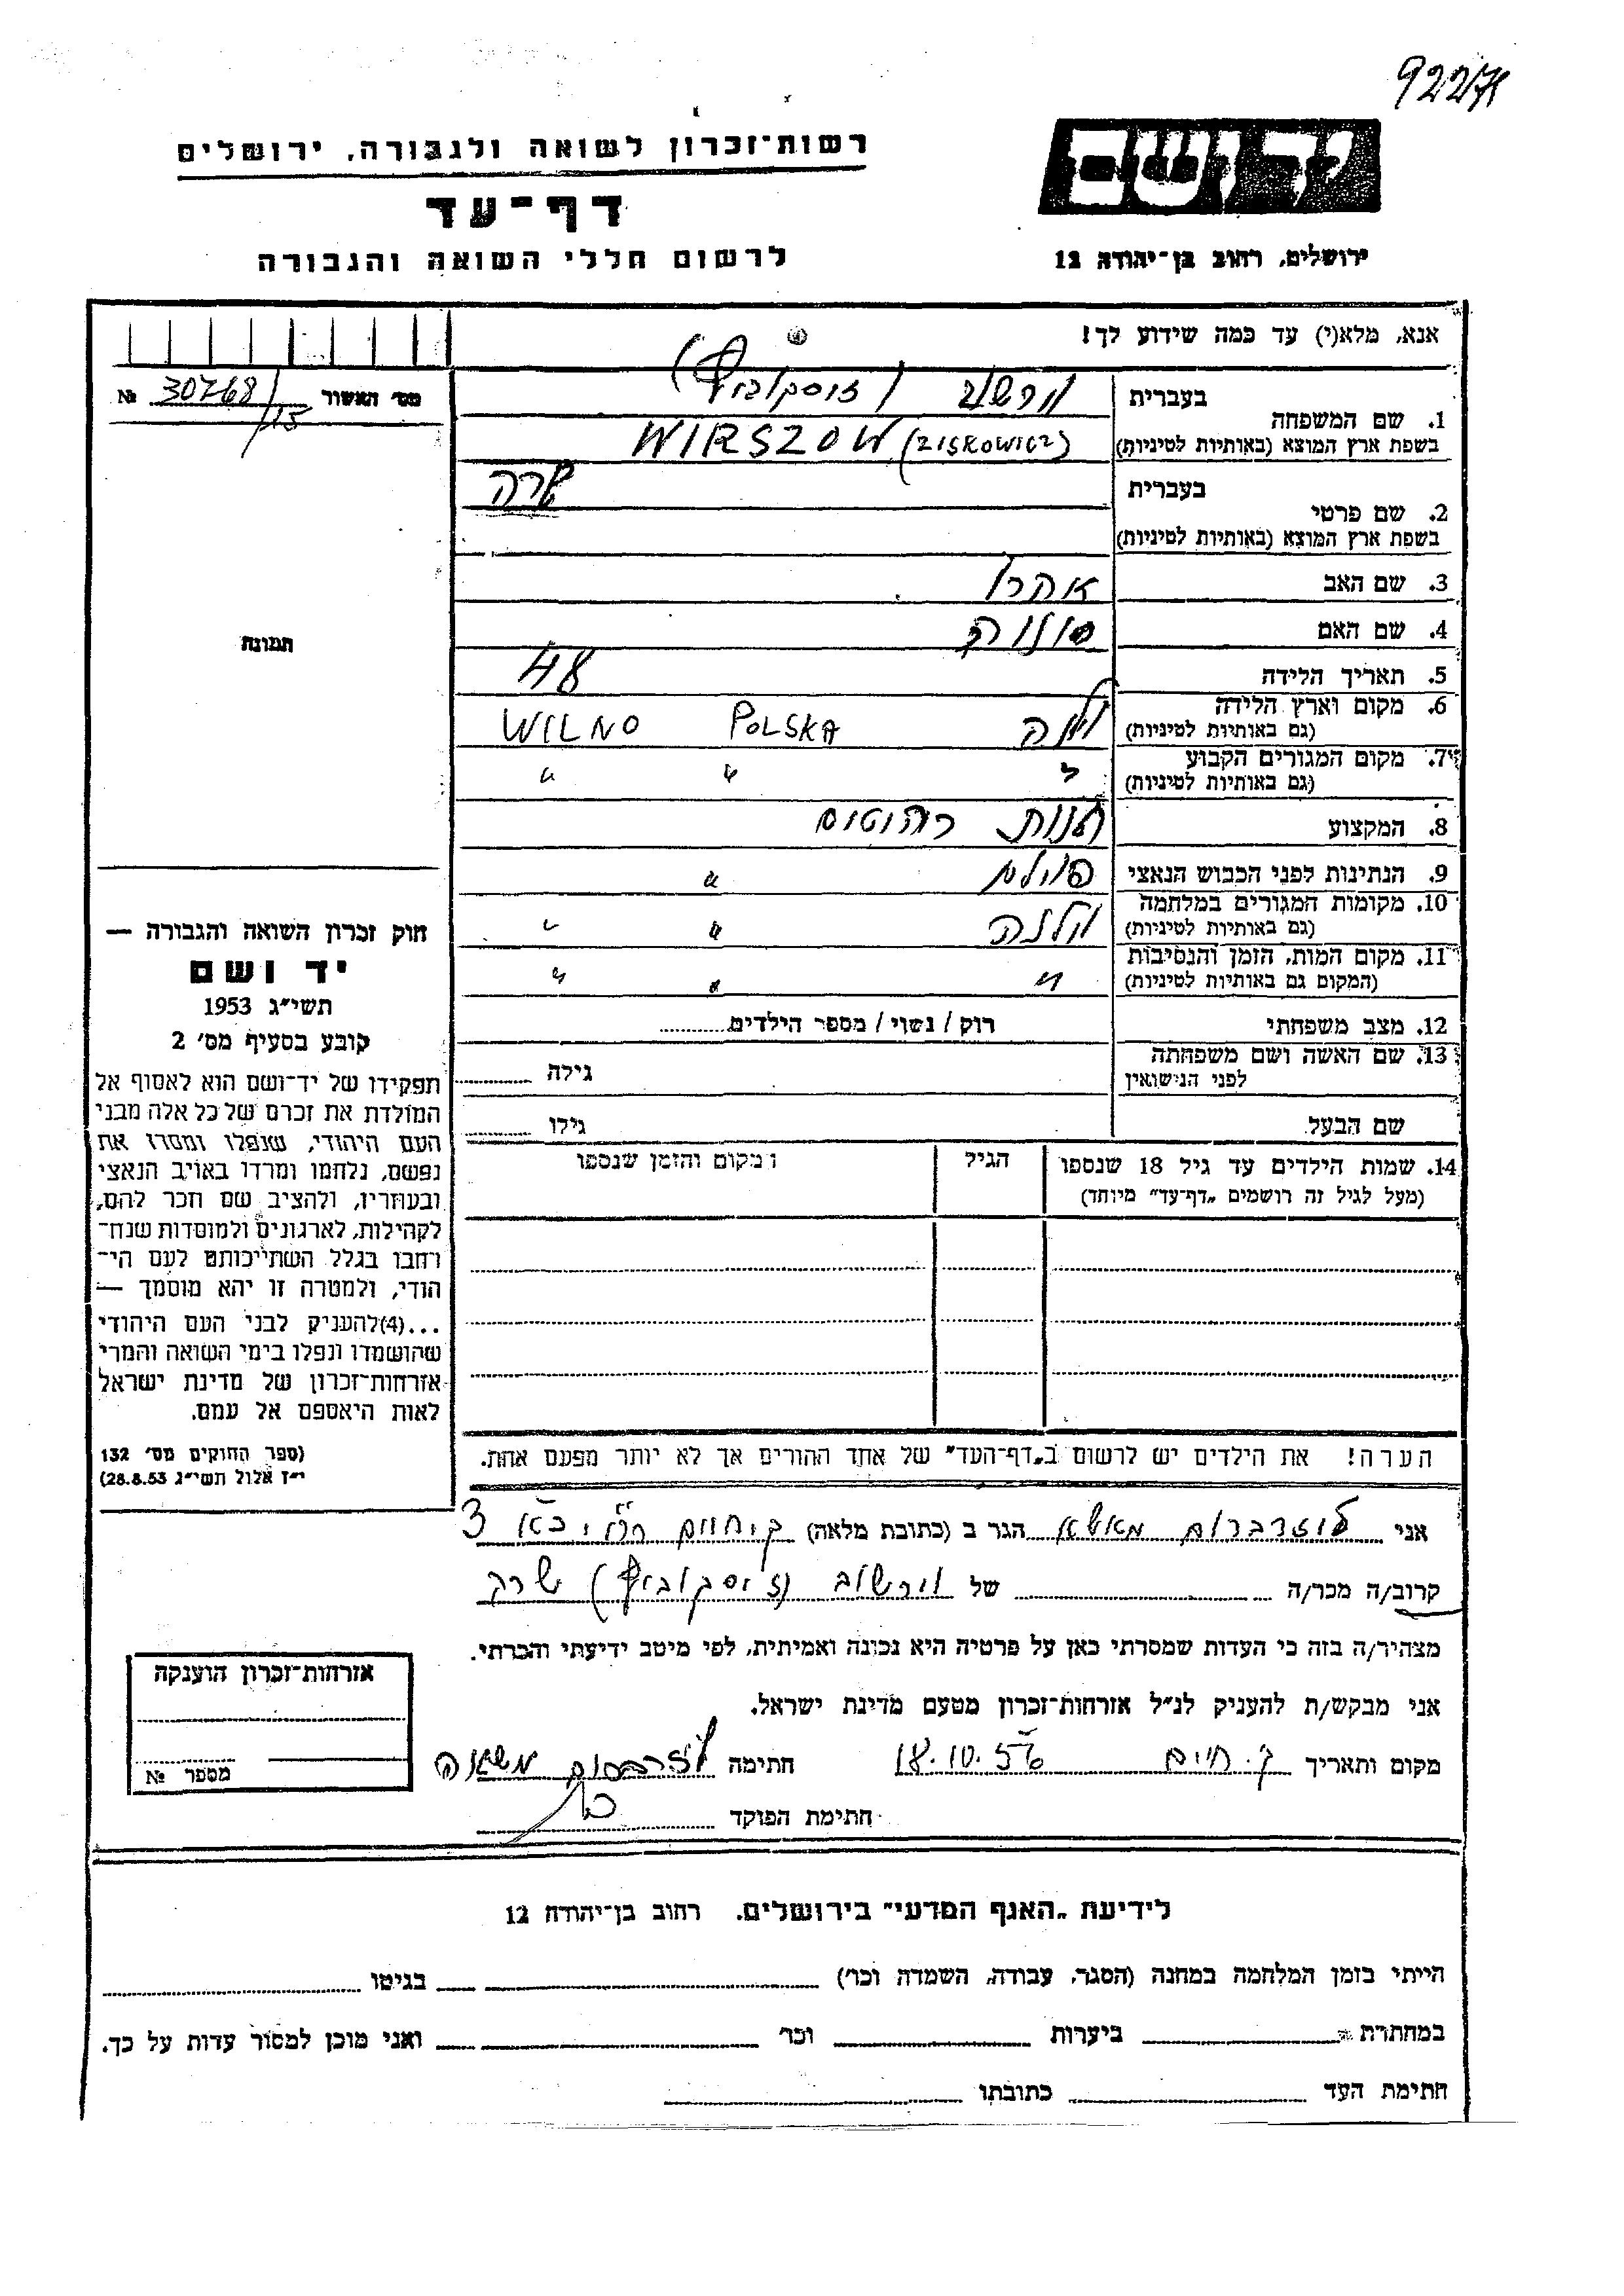 92271
רשות־זכרון לשואה ולגבורה, ירושלים
יד ושם
דף־עד
לרשום חללי השואה והגבורה
ירושלים, רחוב בן־יהודה 12
אנא, מלא(י) עד כמה שידוע לך!
מס׳ האשור № 30768/15
1. שם המשפחה
בעברית וירשוב (זיסקוביץ)
בשפת ארץ המוצא (באותיות לטיניות) WIRSZOW (ZISKOWICZ)
2. שם פרטי
בעברית שרה
בשפת ארץ המוצא (באותיות לטיניות)
3. שם האב אהרן
4. שם האם
תמונה
5. תאריך הלידה 48
6. מקום וארץ הלידה
(גם באותיות לטיניות) וילנה POLSKA WILNO
7. מקום המגורים הקבוע
(גם באותיות לטיניות) " " "
8. המקצוע חנות רהיטים
9. הנתינות לפני הכבוש הנאצי "
10. מקומות המגורים במלחמה
(גם באותיות לטיניות) וילנה " "
11. מקום המות, הזמן והנסיבות
(המקום גם באותיות לטיניות) " " "
12. מצב משפחתי רוק / נשוי / מספר הילדים
13. שם האשה ושם משפחתה
לפני הנישואין גילה
שם הבעל גילו
14. שמות הילדים עד גיל 18 שנספו הגיל המקום והזמן שנספו
(מעל לגיל זה רושמים „דף־עד" מיוחד)
חוק זכרון השואה והגבורה —
יד ושם
תשי״ג 1953
קובע בסעיף מס׳ 2
תפקידו של יד־ושם הוא לאסוף אל
המולדת את זכרם של כל אלה מבני
העם היהודי, שנפלו ומסרו את
נפשם, נלחמו ומרדו באויב הנאצי
ובעוזריו, ולהציב שם וזכר להם,
לקהילות, לארגונים ולמוסדות שנח־
רבו בגלל השתייכותם לעם הי־
הודי, ולמטרה זו יהא מוסמך —
...(4)להעניק לבני העם היהודי
שהושמדו ונפלו בימי השואה והמרי
אזרחות־זכרון של מדינת ישראל
לאות היאספם אל עמם.
(ספר החוקים מס׳ 132
י״ז אלול תשי״ג 28.8.53)
הערה! את הילדים יש לרשום ב„דף־העד" של אחד ההורים אך לא יותר מפעם אחת.
אני הגר ב (כתובת מלאה) 3
קרוב/ה מכר/ה של וירשוב (זיסקוביץ) שרה
מצהיר/ה בזה כי העדות שמסרתי כאן על פרטיה היא נכונה ואמיתית, לפי מיטב ידיעתי והכרתי.
אני מבקש/ת להעניק לנ״ל אזרחות־זכרון מטעם מדינת ישראל.
מקום ותאריך ק. חיים 18.10.56 חתימה
חתימת הפוקד
אזרחות־זכרון הוענקה
מספר №
לידיעת „האגף המדעי" בירושלים. רחוב בן־יהודה 12
הייתי בזמן המלחמה במחנה (הסגר, עבודה, השמדה וכר׳) בגיטו
במחתרת ביערות וכר׳ ואני מוכן למסור עדות על כך.
חתימת העד כתובתו